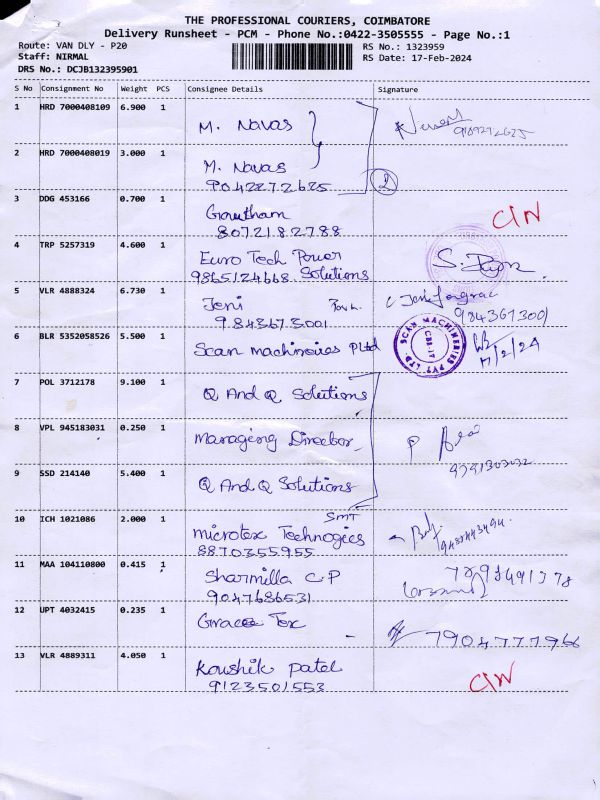 THE PROFESSIONAL COURIERS, COIMBATORE
Delivery Runsheet - PCM - Phone No.:0422-3505555 - Page No.:1
Route: VAN DLY - P20
Staff: NIRMAL
DRS No.: DCJB132395901
RS No.: 1323959
RS Date: 17-Feb-2024
S No Consignment No Weight PCS Consignee Details Signature
1 HRD 7000408109 6.900 1 M. Navas
2 HRD 7000408019 3.000 1 M. Navas
9042272625
2
3 DDG 453166 0.700 1 Gowtham
8072182788
CIN
4 TRP 5257319 4.600 1 Euro Tech Power
9865124668 Solutions
5 VLR 4888324 6.730 1 Jeni
9843673001
6 BLR 5352058526 5.500 1 Scan machineries P Ltd
SCAN MACHINERIES PVT LTD
CBE-17
17/2/24
7 POL 3712178 9.100 1 Q And Q Solutions
8 VPL 945183031 0.250 1 Managing Director
9 SSD 214140 5.400 1 Q And Q Solutions
10 ICH 1021086 2.000 1 SMT
microtex Technogies
8870355955
11 MAA 104110800 0.415 1 Sharmilla C P
9047686531
12 UPT 4032415 0.235 1 Grace Tex
7904777966
13 VLR 4889311 4.050 1 Koushik patel
9123501553
CIN